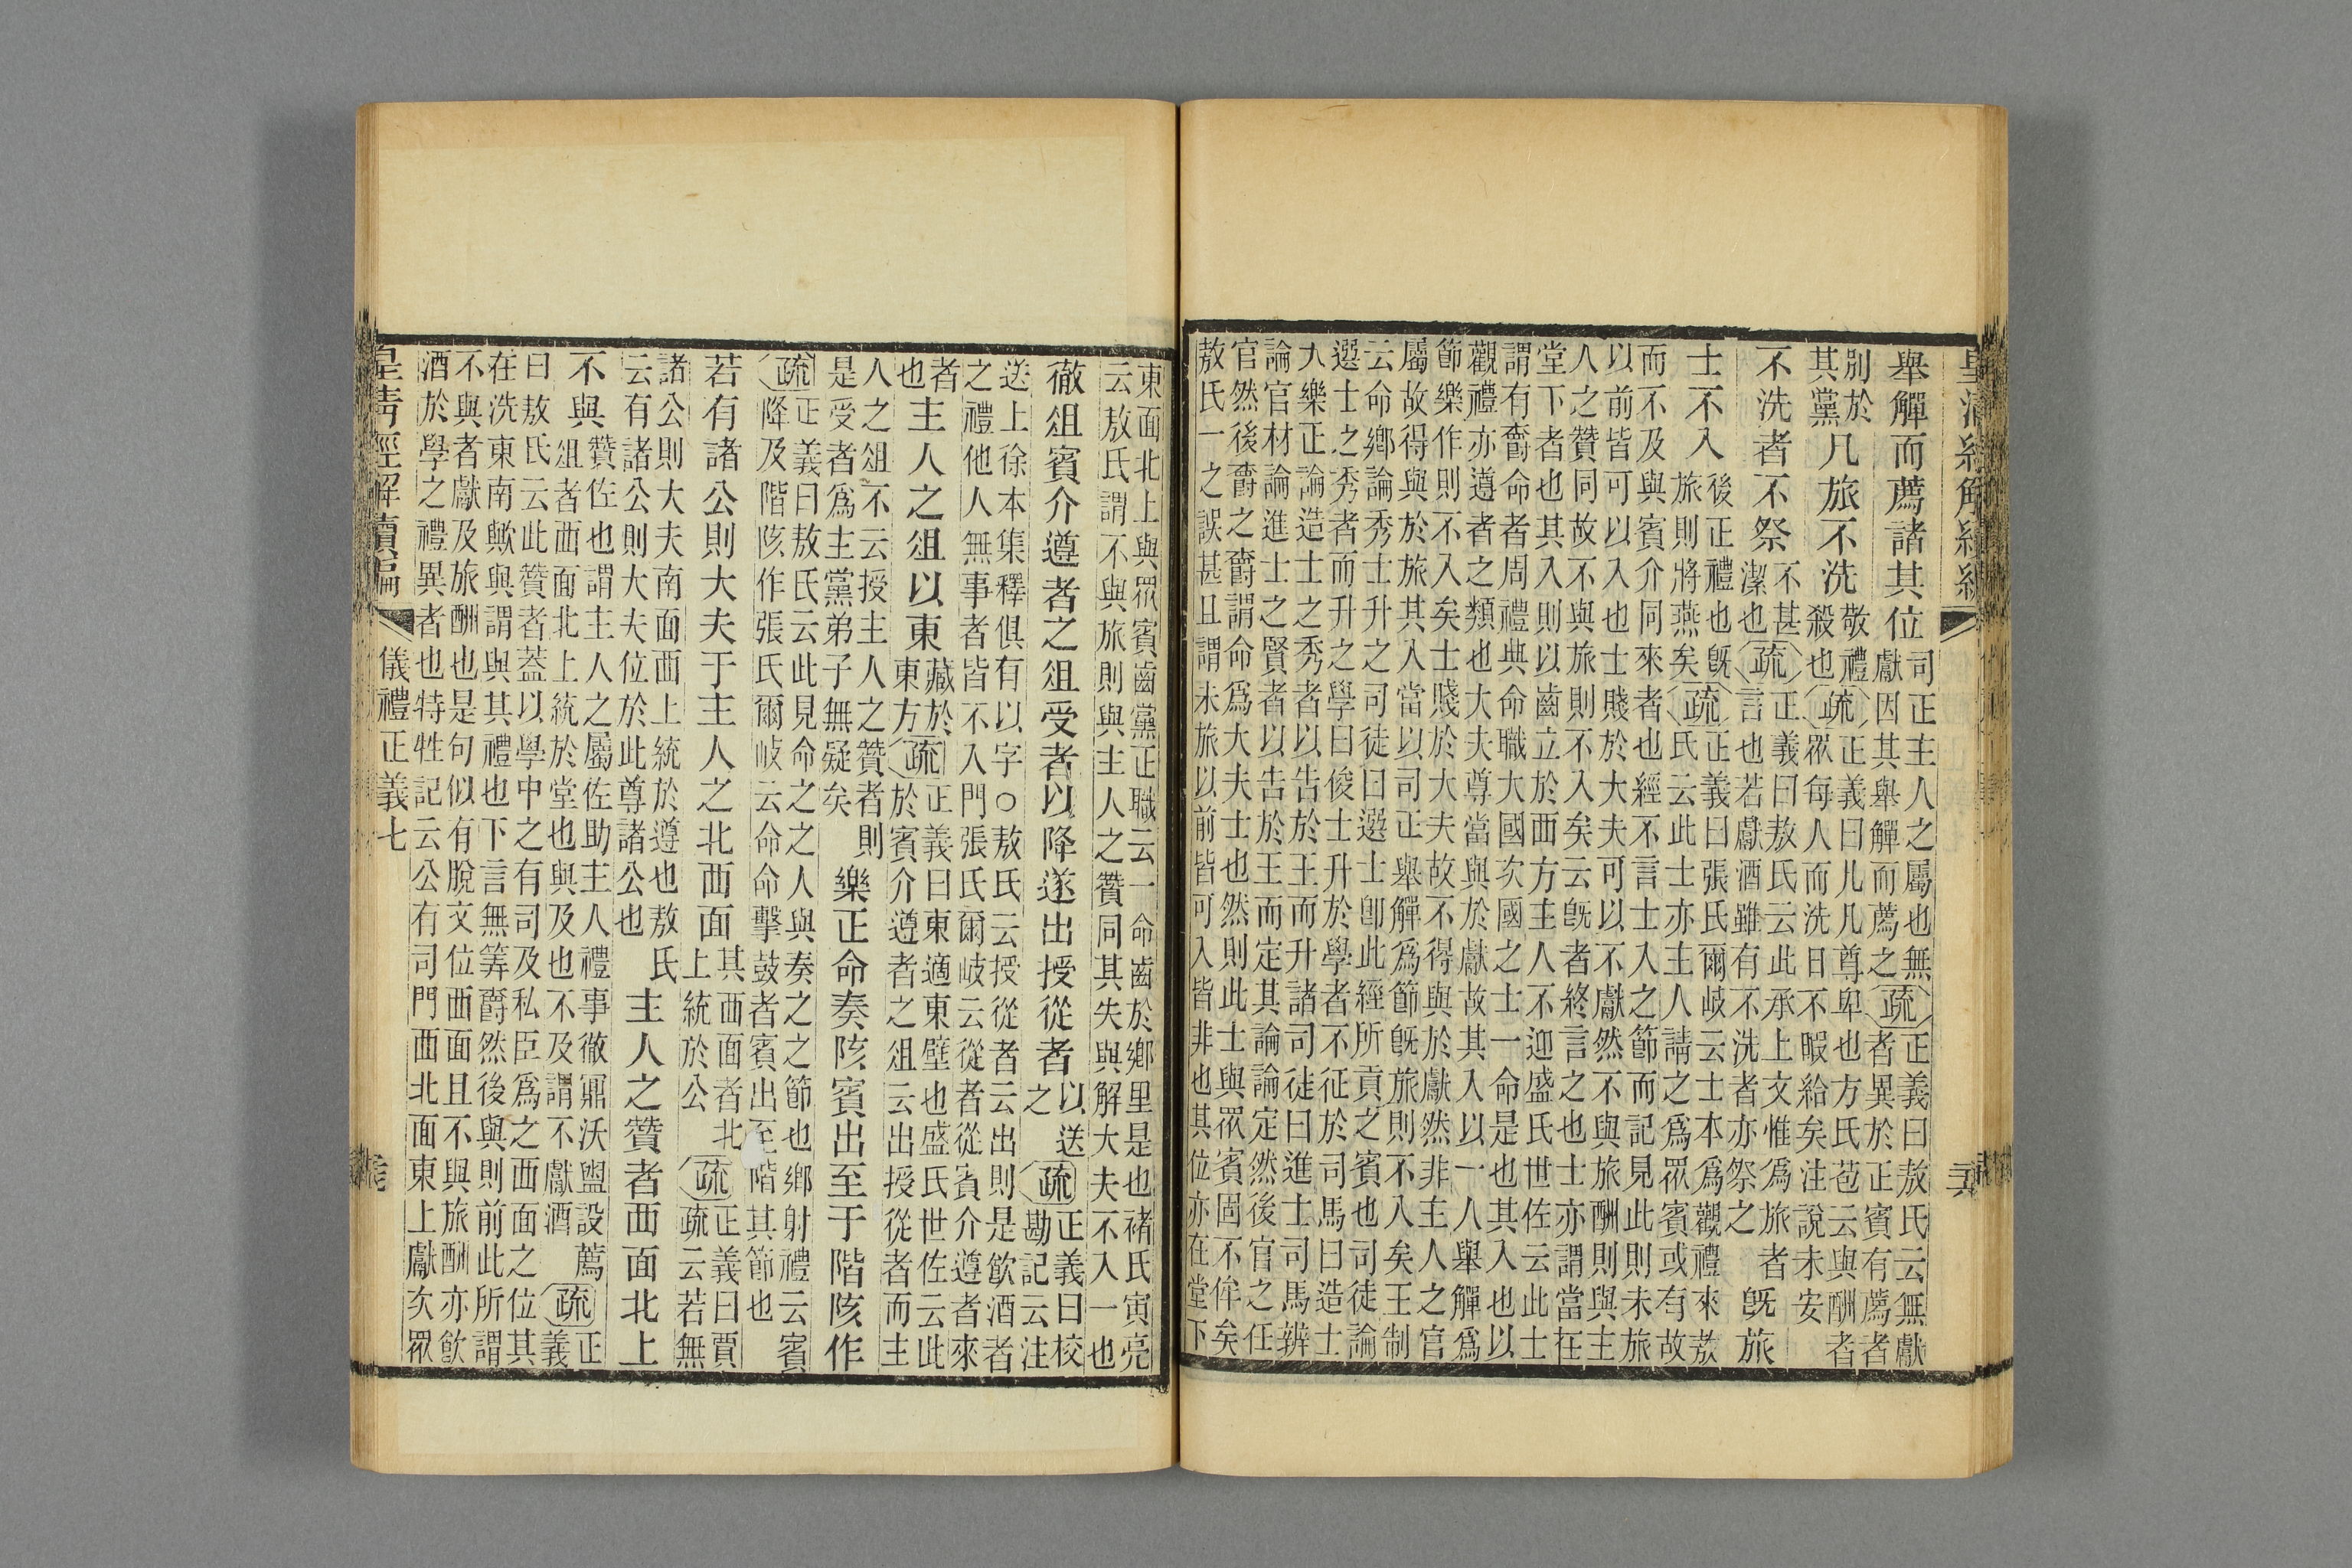 舉觶而薦諸其位
司正主人之屬也無
獻因其舉觶而薦之
疏
正義曰敖氏云無獻
者異於正賓有薦者
別於
其黨
凡旅不洗
敬禮
殺也
疏
正義曰凡凡尊卑也方氏苞云與酬者
眾每人而洗日不暇給矣注說未安
不洗者不祭
不甚
潔也
疏
正義曰敖氏云此承上文惟爲旅者
言也若獻酒雖有不洗者亦祭之
既旅
士不入
後正禮也既
旅則將燕矣
疏
正義曰張氏爾岐云士本爲觀禮來敖
氏云此士亦主人請之爲眾賓或有故
而不及與賓介同來者也經不言士入之節而記見此則未旅
以前皆可以入也士賤於大夫可以不獻然不與旅酬則與主
人之贊同故不與旅則不入矣云既者終言之也士亦謂當在
堂下者也其入則以齒立於西方主人不迎盛氏世佐云此士
謂有爵命者周禮典命職大國次國之士一命是也其入也以
觀禮亦遵者之類也大夫尊當與於獻故其入以一人舉觶爲
節樂作則不入矣士賤於大夫故不得與於獻然非主人之官
屬故得與於旅其入當以司正舉觶爲節既旅則不入矣王制
云命鄉論秀士升之司徒曰選士卽此經所貢之賓也司徒論
選士之秀者而升之學曰俊士升於學者不征於司馬曰造士
大樂正論造士之秀者以告於王而升諸司徒曰進士司馬辨
論官材論進士之賢者以告於王而定其論論定然後官之任
官然後爵之爵謂命爲大夫士也然則此士與眾賓固不侔矣
敖氏一之誤甚且謂未旅以前皆可入皆非也其位亦在堂下
東面北上與眾賓齒黨正職云一命齒於鄉里是也褚氏寅亮
云敖氏謂不與旅則與主人之贊同其失與解大夫不入一也
徹俎賓介遵者之俎受者以降遂出授從者
以送
之
疏
正義曰校
勘記云注
送上徐本集釋俱有以字○敖氏云授從者云出則是飲酒者
之禮他人無事者皆不入門張氏爾岐云從者從賓介遵者來
者
也
主人之俎以東
藏於
東方
疏
正義曰東適東壁也盛氏世佐云此
於賓介遵者之俎云出授從者而主
人之俎不云授主人之贊者則
是受者爲主黨弟子無疑矣
樂正命奏陔賓出至于階陔作
疏
正義曰敖氏云此見命之之人與奏之之節也鄉射禮云賓
降及階陔作張氏爾岐云命命擊鼓者賓出至階其節也
若有諸公則大夫于主人之北西面
其西面者北
上統於公
疏
正義曰賈
疏云若無
諸公則大夫南面西上統於遵也敖氏
云有諸公則大夫位於此尊諸公也
主人之贊者西面北上
不與
贊佐也謂主人之屬佐助主人禮事徹鼏沃盥設薦
俎者西面北上統於堂也與及也不及謂不獻酒
疏
正
義
曰敖氏云此贊者蓋以學中之有司及私臣爲之西面之位其
在洗東南歟與謂與其禮也下言無筭爵然後與則前此所謂
不與者獻及旅酬也是句似有脫文位西面且不與旅酬亦飲
酒於學之禮異者也特牲記云公有司門西北面東上獻次眾
皇清經解續編
儀禮正義七